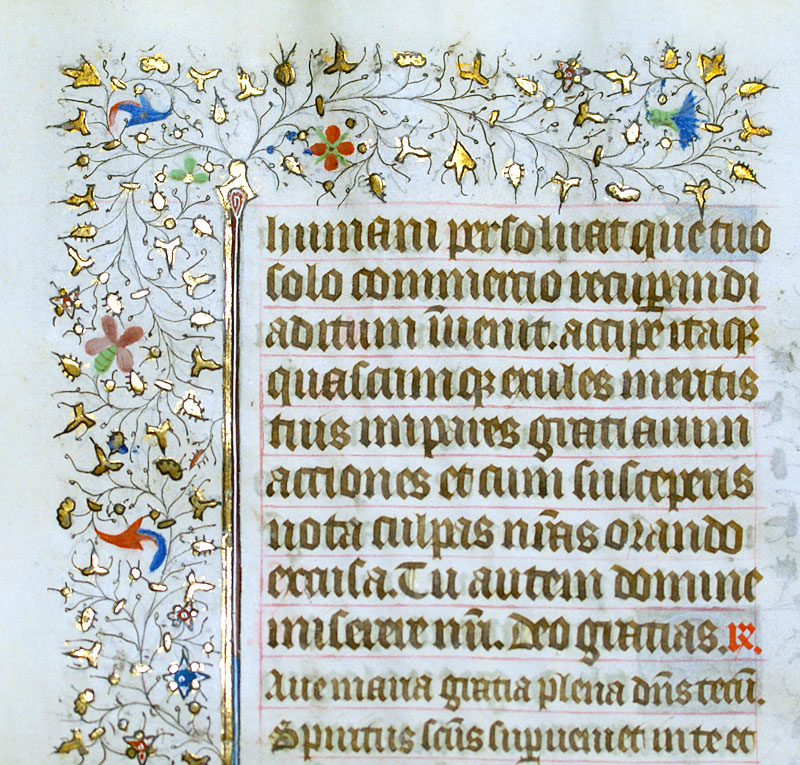 humani persoluat que tuo
solo commertio recup̲andi
aditum īuenit. accipe itaqꝫ
quascumqꝫ exules meritis
tuis impares gratiarum
actiones et cum susceperis
uota culpas nr̄as orando
excusa. Tu autem domine
miserere nr̄i. Deo gratias. ℟.
Aue maria gratia plena dn̄s tecū.
Spiritus scūs suꝑueniet in te et